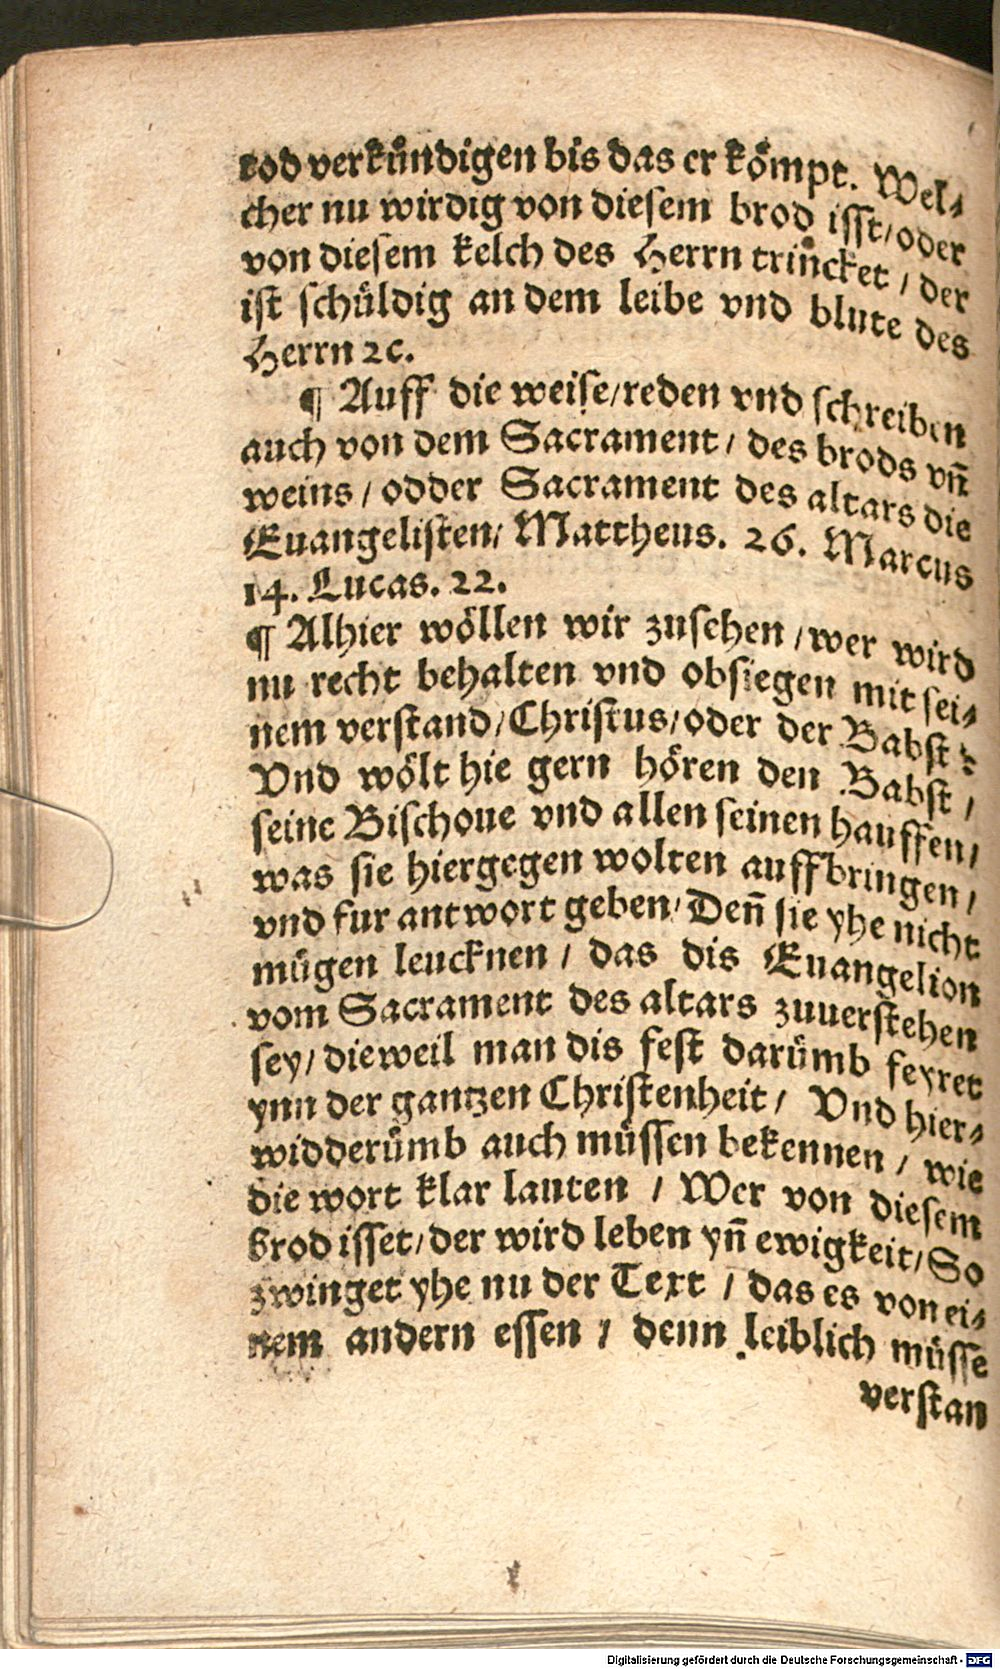 tod verkůndigen bis das er kömpt. Wel⸗
cher nu wirdig von diesem brod isst/oder
von diesem kelch des Herrn trincket / der
ist schůldig an dem leibe vnd blute des
Herrn ꝛc.
¶ Auff die weise/reden vnd schreiben
auch von dem Sacrament / des brods vn̄
weins / odder Sacrament des altars die
Euangelisten/ Mattheus. 26. Marcus
14. Lucas. 22.
¶ Alhier wöllen wir zusehen /wer wird
nu recht behalten vnd obsiegen mit sei⸗
nem verstand/Christus/oder der Babst ?
Vnd wölt hie gern hören den Babst /
seine Bischoue vnd allen seinen hauffen/
was sie hiergegen wolten auffbringen /
vnd fur antwort geben/ Den̄ sie yhe nicht
můgen leucknen / das dis Euangelion
vom Sacrament des altars zuuerstehen
sey/ dieweil man dis fest darůmb feyret
ynn der gantzen Christenheit / Vnd hier⸗
widderůmb auch můssen bekennen / wie
die wort klar lauten / Wer von diesem
brod isset/der wird leben yn̄ ewigkeit/ So
zwinget yhe nu der Text / das es von ei⸗
nem andern essen / denn leiblich můsse
verstan
Digitalisierung gefördert durch die Deutsche Forschungsgemeinschaft - DFG